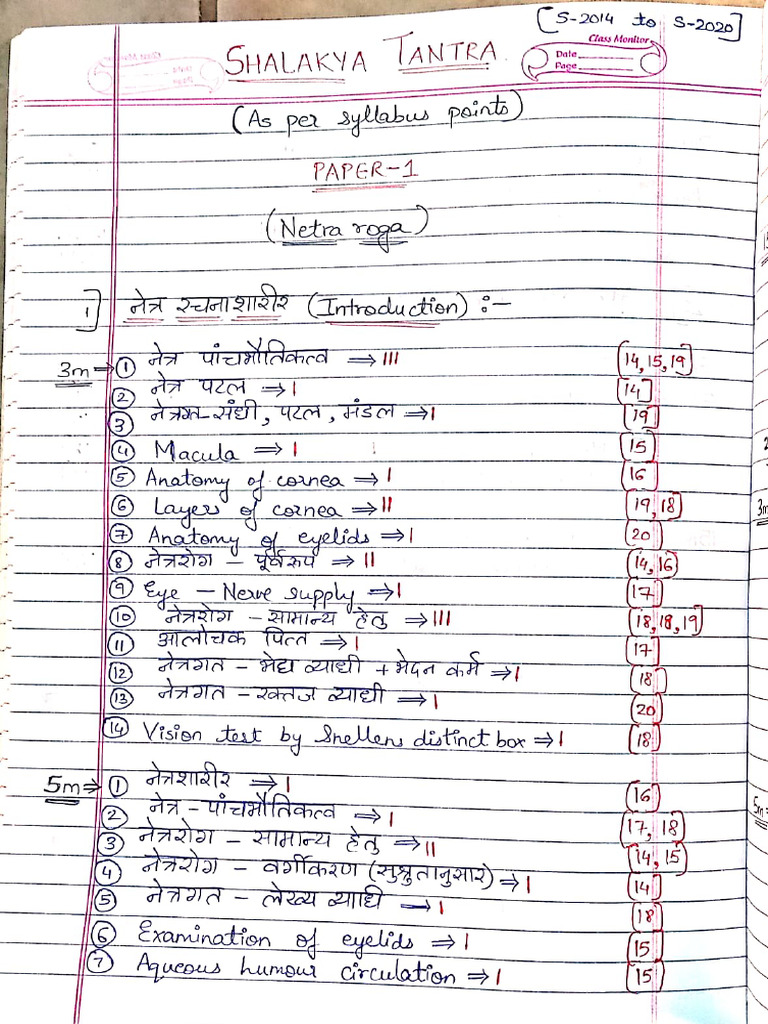 [S-2014 to S-2020]
Class Monitor
Date
Page
SHALAKYA TANTRA
(As per syllabus points)
PAPER-1
(Netra roga)
1] नेत्र रचनाशारीर (Introduction) :-
3m → ① नेत्र पांचभौतिकत्व ⇒ III [14, 15, 19]
② नेत्र पटल ⇒ I [14]
③ नेत्रगत-संधी, पटल, मंडल ⇒ I [19]
④ Macula ⇒ I [15]
⑤ Anatomy of cornea ⇒ I [16]
⑥ Layers of cornea ⇒ II [19, 18]
⑦ Anatomy of eyelids ⇒ I [20]
⑧ नेत्ररोग - पूर्वरूप ⇒ II [14, 16]
⑨ Eye - Nerve supply ⇒ I [17]
⑩ नेत्ररोग - सामान्य हेतु ⇒ III [18, 18, 19]
⑪ आलोचक पित्त ⇒ I [17]
⑫ नेत्रगत - भेद्य व्याधी + भेदन कर्म ⇒ I [18]
⑬ नेत्रगत - रक्तज व्याधी ⇒ I [20]
⑭ Vision test by Snellens distinct box ⇒ I [18]
5m ⇒ ① नेत्रशारीर ⇒ I [16]
② नेत्र - पांचभौतिकत्व ⇒ I [17, 18]
③ नेत्ररोग - सामान्य हेतु ⇒ II [14, 15]
④ नेत्ररोग - वर्गीकरण (सुश्रुतानुसार) ⇒ I [14]
⑤ नेत्रगत - लेख्य व्याधी ⇒ I [18]
⑥ Examination of eyelids ⇒ I [15]
⑦ Aqueous humour circulation ⇒ I [15]